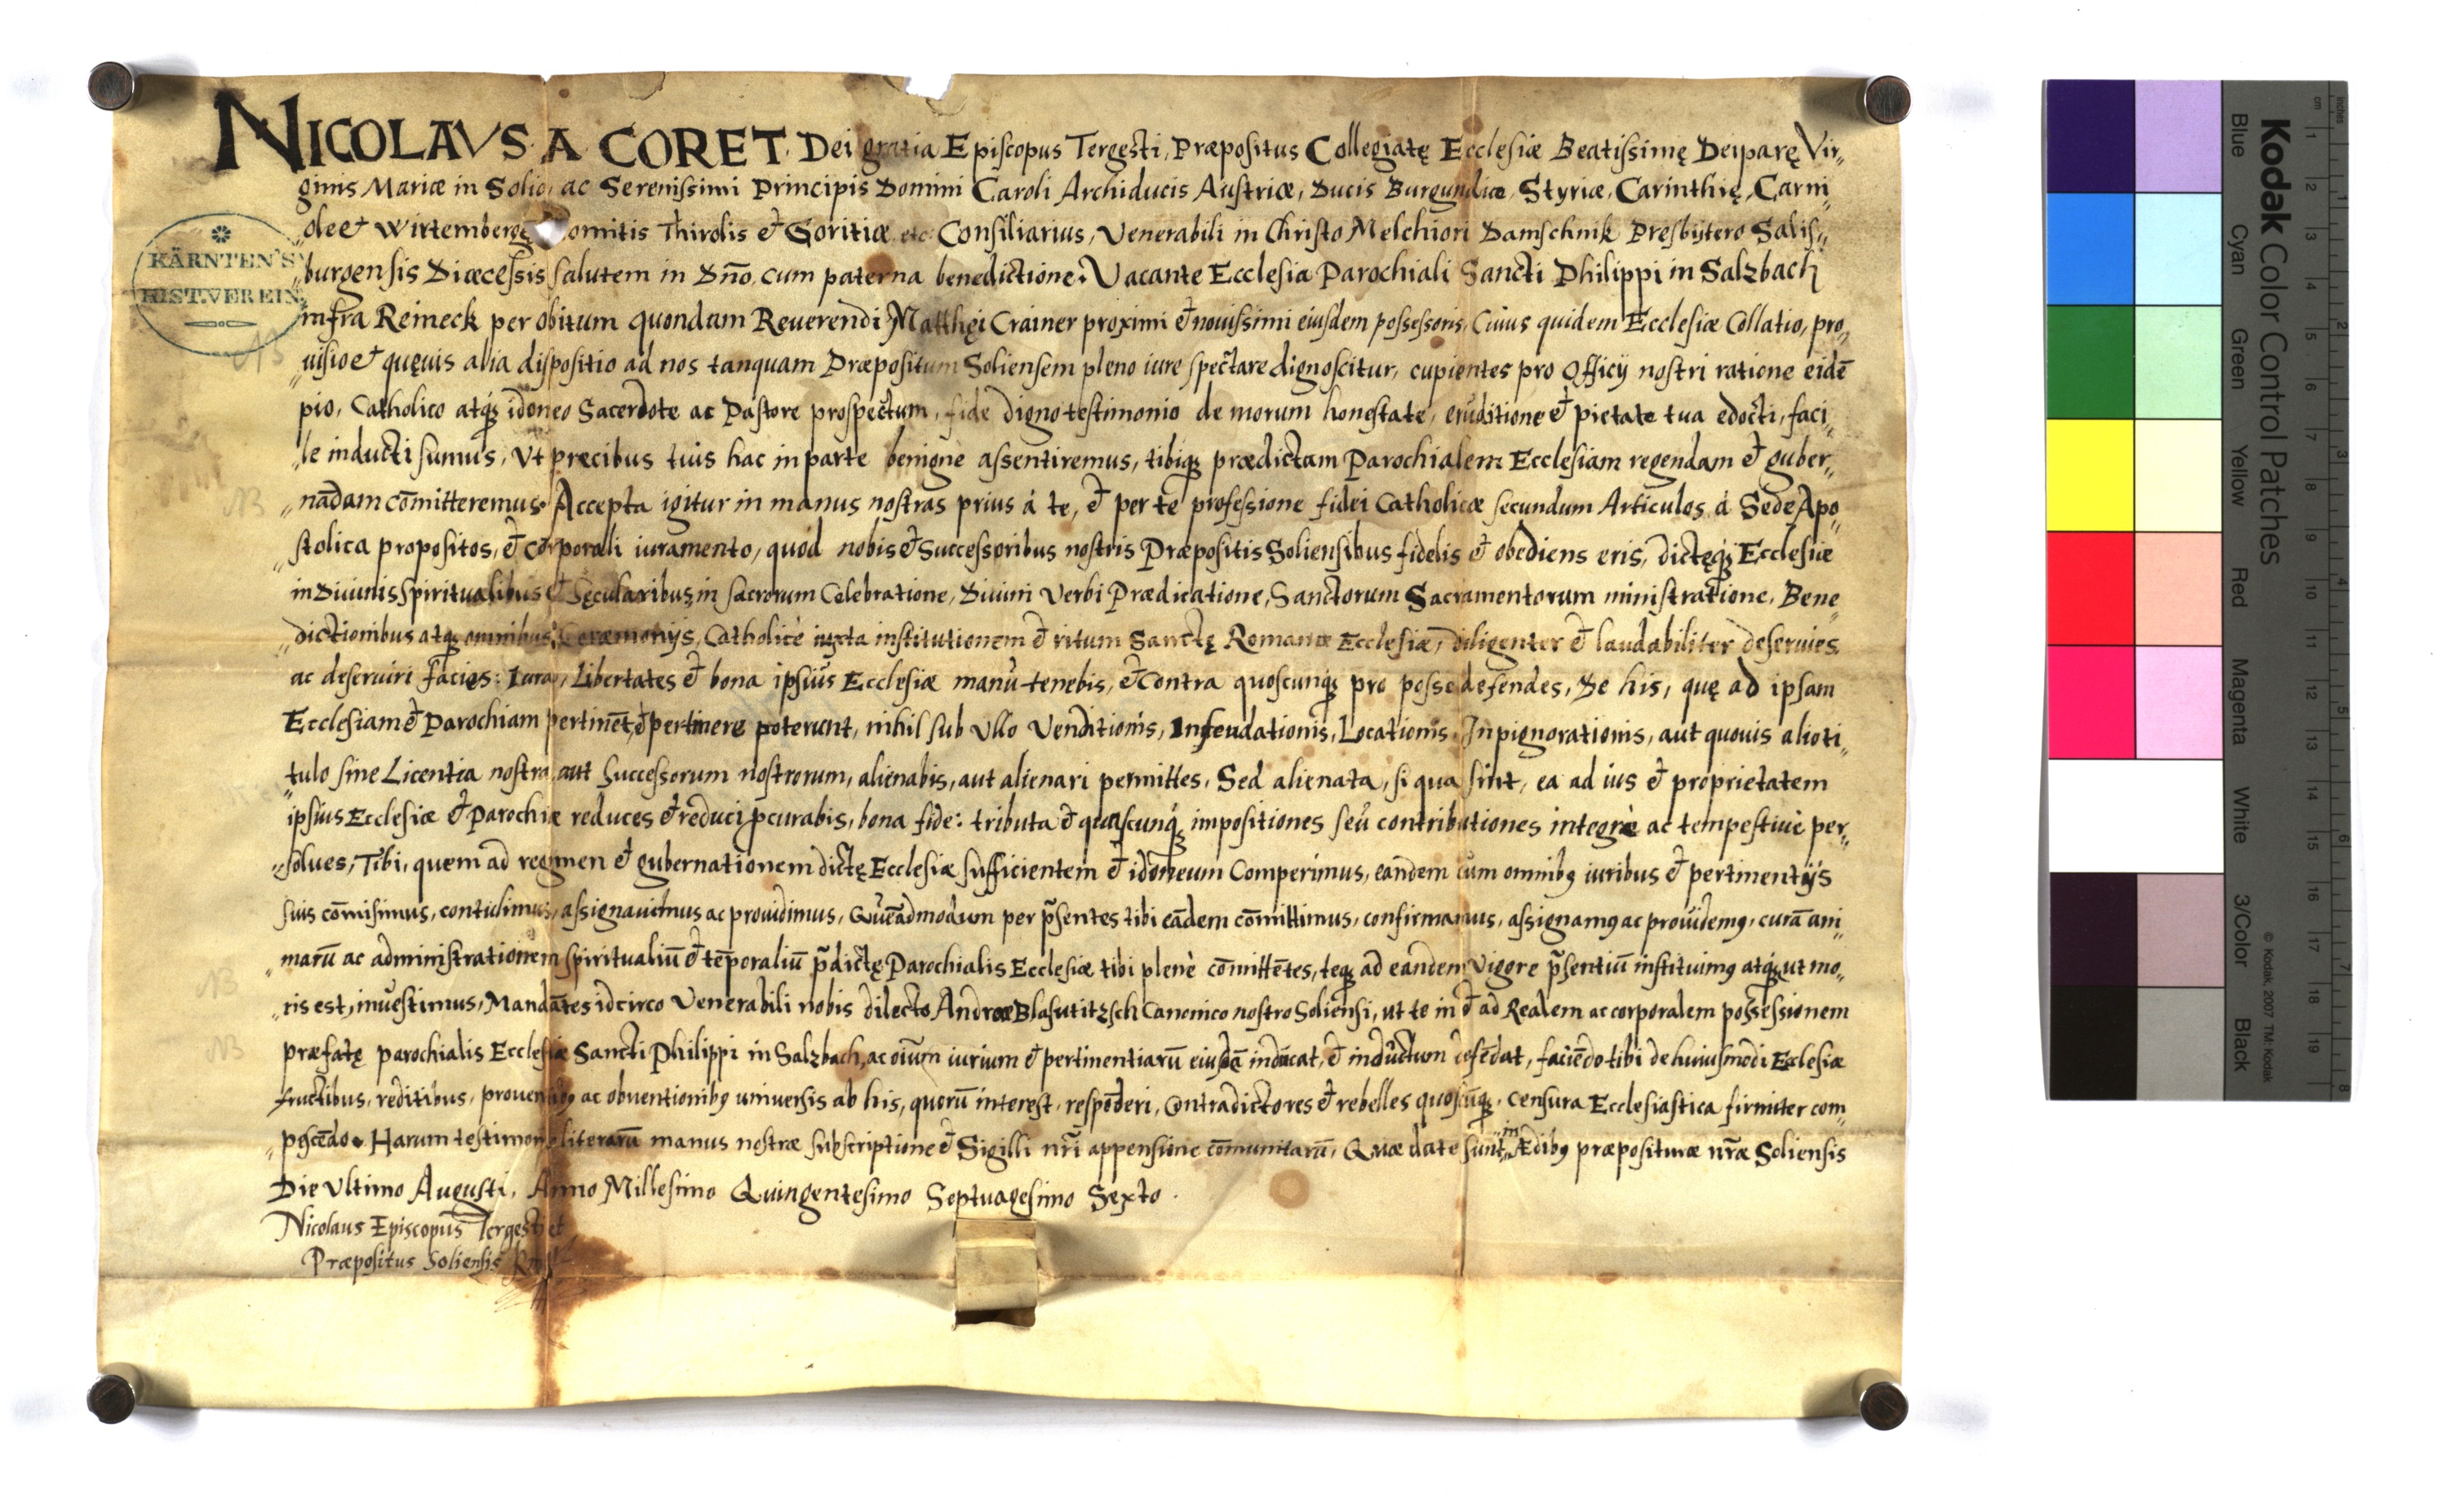 NICOLAVS A CORET Dei gratia Episcopus Tergesti, Præpositus Collegiatę Ecclesiæ Beatissimę Deiparę Vir„
ginis Mariæ in Solio, ac Serenissimi Principis Domini Caroli Archiducis Austriæ, Ducis Burgundiæ, Styriæ, Carinthię, Carni„
„olę et Wirtembergę Comitis Thirolis et Goritiæ etc. Consiliarius, Venerabili in Christo Melchiori Damschnik Presbijtero Salis„
„burgensis Diæcessis salutem in Dño. cum paterna benedictione. Vacante Ecclesia Parochiali Sancti Philippi in Salzbach
infra Reineck per obitum quondam Reuerendi Matthęi Crainer proximi et nouissimi eiusdem possessoris, Cuius quidem Ecclesiæ Collatio, pro„
„uisio et quęuis alia dispositio ad nos tanquam Præpositum Soliensem pleno iure spectare dignoscitur, cupientes pro Officij nostri ratione eidē
pio, Catholico atq́ꝫ idoneo Sacerdote ac Pastore prospectum, fide digno testimonio de morum honestate, eruditione et pietate tua edocti, faci„
„le inducti sumus, Vt precibus tuis hac in parte benigne assentiremus, tibiqꝫ prædictam Parochialem Ecclesiam regendam et guber„
„nādam cōmitteremus. Accepta igitur in manus nostras prius à te, et per te professione fidei Catholicæ secundum Articulos à Sede Apo„
„stolica propositos, et corporali iuramento, quòd nobis et Successoribus nostris Præpositis Soliensibus fidelis et obediens eris, dictęq́ꝫ Ecclesiæ
in Diuinis Spiritualibus et Sęcularibus, in sacrorum Celebratione, Diuini Verbi Prædicatione, Sanctorum Sacramentorum ministratione, Bene„
„dictionibus atqꝫ omnibus Ceræmonijs, Catholicè iuxta institutionem et ritum Sanctę Romanæ Ecclesiæ, diligenter et laudabiliter deseruies
ac deseruiri facies: Iura, Libertates et bona ipsius Ecclesiæ manu-tenebis, et Contra quoscunq́ꝫ pro posse defendes, De his, quę ad ipsam
Ecclesiam et Parochiam pertinēt, et pertinere poterunt, nihil sub Vllo Venditionis, Infeudationis, Locationis, Inpignorationis, aut quouis alio ti„
„tulo sine Licentia nostra, aut Successorum nostrorum, alienabis, aut alienari permittes, Sed alienata, si qua sint, ea ad ius et proprietatem
ipsius Ecclesiæ et Parochiæ reduces et reduci ꝓcurabis, bona fide: tributa et quascunq́ꝫ impositiones seu contributiones integrè ac tempestiuè per„
„solues, Tibi, quem ad regimen et gubernationem dictę Ecclesiæ sufficientem et idoneum Comperimus, eandem cum omnibꝰ iuribus et pertinentijs
suis cōmisimus, contulimus, assignauimus ac prouidimus, Quēadmodum per p̃sentes tibi eādem cōmittimus, confirmamus, assignamꝰ ac prouidemꝰ, curā ani„
„marū ac administrationem spiritualiū et tēporaliū p̃dictę Parochialis Ecclesiæ tibi plenè cōmittētes, teqꝫ ad eandem Vigore p̃sentiū instituimꝰ atqꝫ ut mo„
„ris est, inuestimus, Mandātes idcirco Venerabili nobis dilecto Andreæ Blasutitzsch Canonico nostro Soliensi, ut te in et ad Realem ac corporalem possessionem
præfatę parochialis Ecclesiæ Sancti Philippi in Salzbach, ac oīum iurium et pertinentiarū eiusdē inducat, et inductum defēdat, faciēdo tibi de huiusmodi Ecclesiæ
fructibus, reditibus, prouentibꝰ ac obuentionibꝰ uniuersis ab his, quorū interest, respōderi, Contradictores et rebelles quoscūqꝫ, censura Ecclesiastica firmiter com„
„pescēdo. Harum testimonio literarū manus nostræ subscriptione et Sigilli nr̃i appensione cōmunitarū, Quæ datę sunt in Ædibꝰ præposituræ nr̃æ Soliensis
Die Vltimo Augusti, Anno Millesimo Quingentesimo Septuagesimo Sexto.
Nicolaus Episcopus Tergesti et
Præpositus Soliensis
KÄRNTEN'S
HIST. VEREIN
NB
NB
NB
NB
Kodak Color Control Patches
Blue Cyan Green Yellow Red Magenta White 3/Color Black
© Kodak, 2007 TM: Kodak
cm 1 2 3 4 5 6 7 8 9 10 11 12 13 14 15 16 17 18 19
Inches 1 2 3 4 5 6 7 8